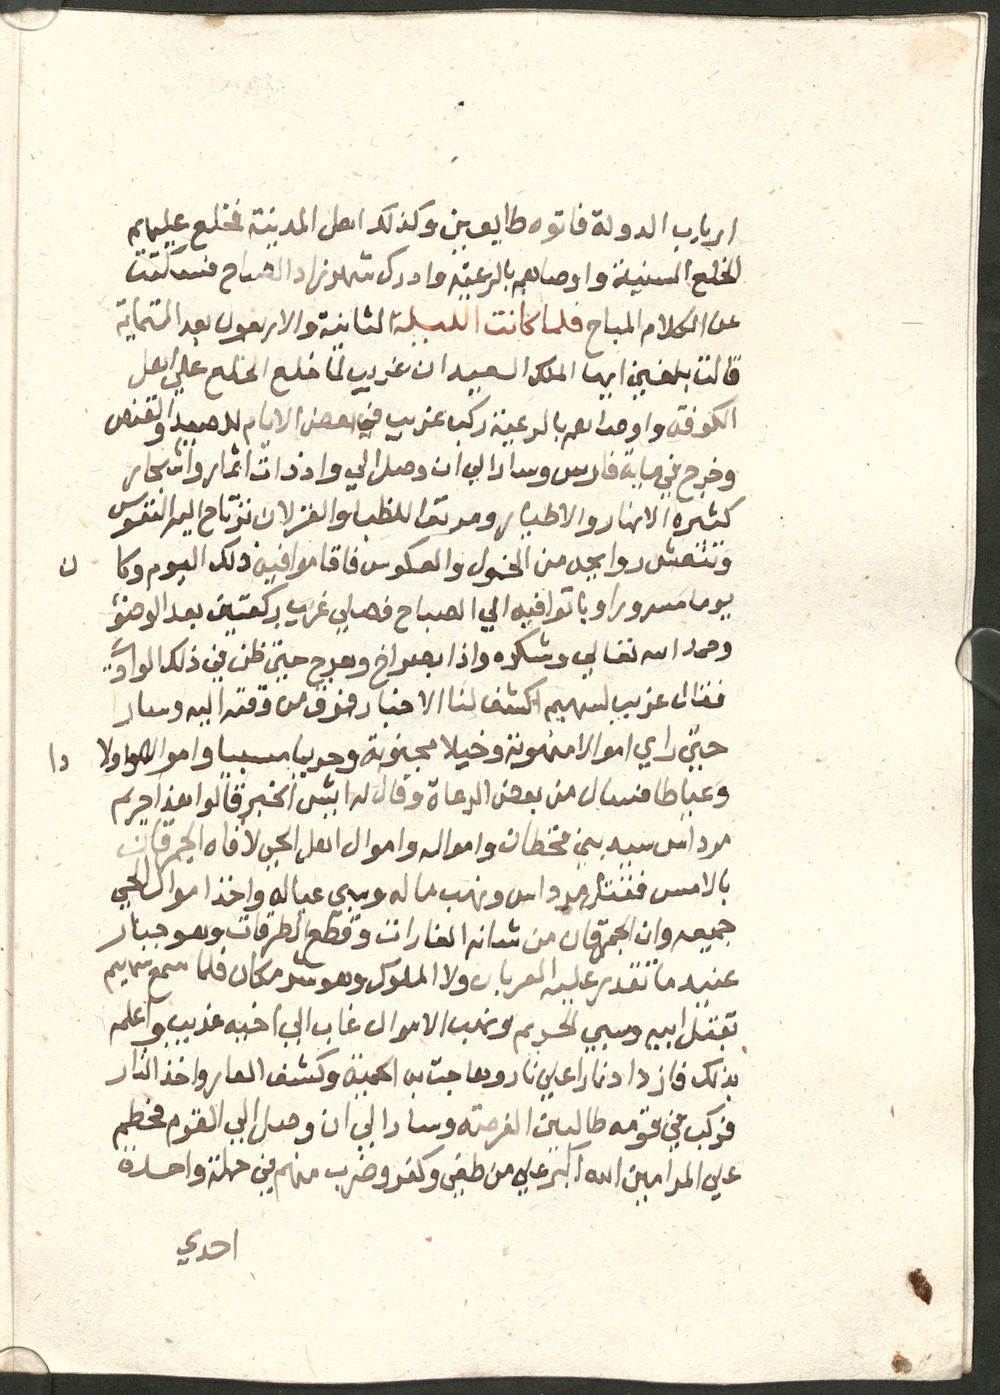 ارباب الدولة فاتوه طايعين وكذلك اهل المدينة فخلع عليهم
الخلع السنية واوصاهم بالرعية وادرك شهرزاد الصباح فسكتت
عن الكلام المباح فلما كانت الليلة الثانية والاربعون بعد الستماية
قالت بلغني ايها الملك السعيد ان غريب لما خلع الخلع علي اهل
الكوفة واوصاهم بالرعية ركب غريب في بعض الايام للصيد والقنص
وخرج في ماية فارس وسار الي ان وصل الي واد ذات اثمار واشجار
كثيره الانهار والاطيار ومرتقا للظبا والغزلان ترتاح اليه النفوس
وتنتعش روايحه من الخمول والعكوس فاقاموا فيه ذلك اليوم وكا ن
يوما مسرورا وباتوا فيه الي الصباح فصلي غريب ركعتين بعد الوضؤ
وحمد الله تعالي وشكره واذا بصراخ وهرج حتي ظن في ذلك الوادي
فقال غريب لسهيم اكشف لنا الاخبار فمرق من وقته اليه وسار
حتي راي اموالا منهوبة وخيلا مجنوبة وحريما مسبيا واموالا واولا دا
وعياطا فسال من بعض الرعاة وقال له ايش الخبر قالوا هذا حريم
مرداس سيد بني قحطان وامواله واموال اهل الحي لاقاه الجمرقان
بالامس فقتل مرداس ونهب ماله وسبي عياله واخذ اموال الحي
جميعه وان الجمرقان من شانه الغارات وقطع الطرقات وهو جبار
عنيد ما تقدر عليه العربان ولا الملوك وهو شر مكان فلما سمع سهيم
بقتل ابيه وسبي الحريم ونهب الاموال غاب الي اخيه غريب واعلمه
بذلك فازداد نارا علي نار وهاجت به الحمية وكشف العار واخذ الثار
فركب في قومه طالبين الفرصة وسار الي ان وصل الي القوم فحطم
علي المرامين الله اكبر علي من طغي وكفر وضرب منهم في حملة واحدة
احدي